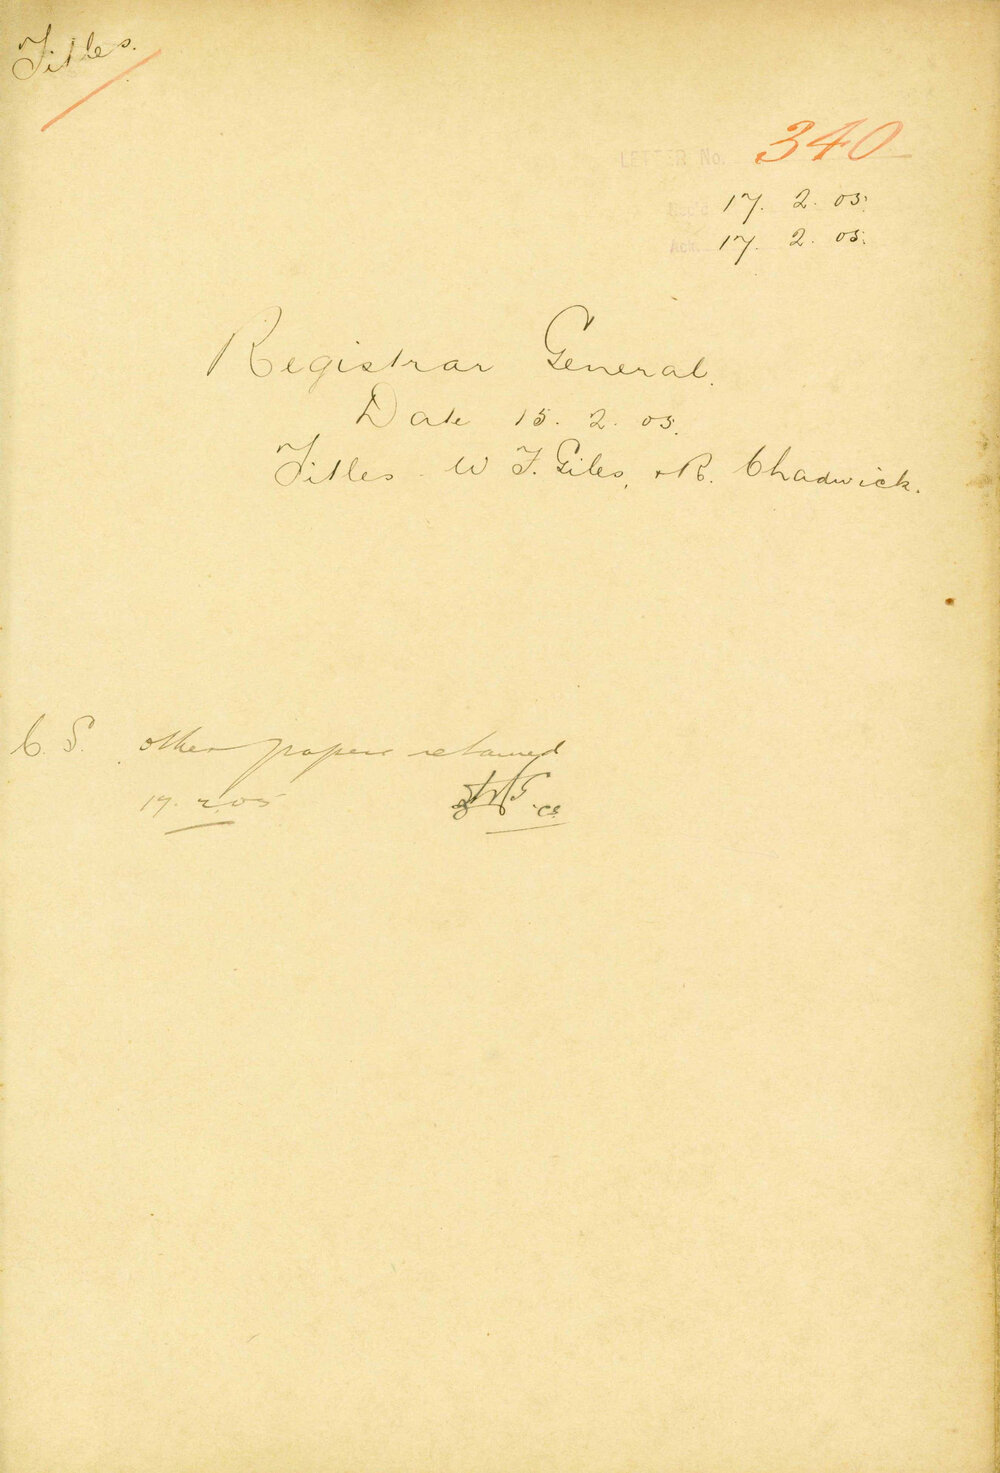 Titles.
LETTER No. 340
Rec'd 17. 2. 05.
Ack. 17. 2. 05.
Registrar General.
Date 15. 2. 05.
Titles W F. Giles, & R. Chadwick.
C. S. other papers retained
17. 2. 05